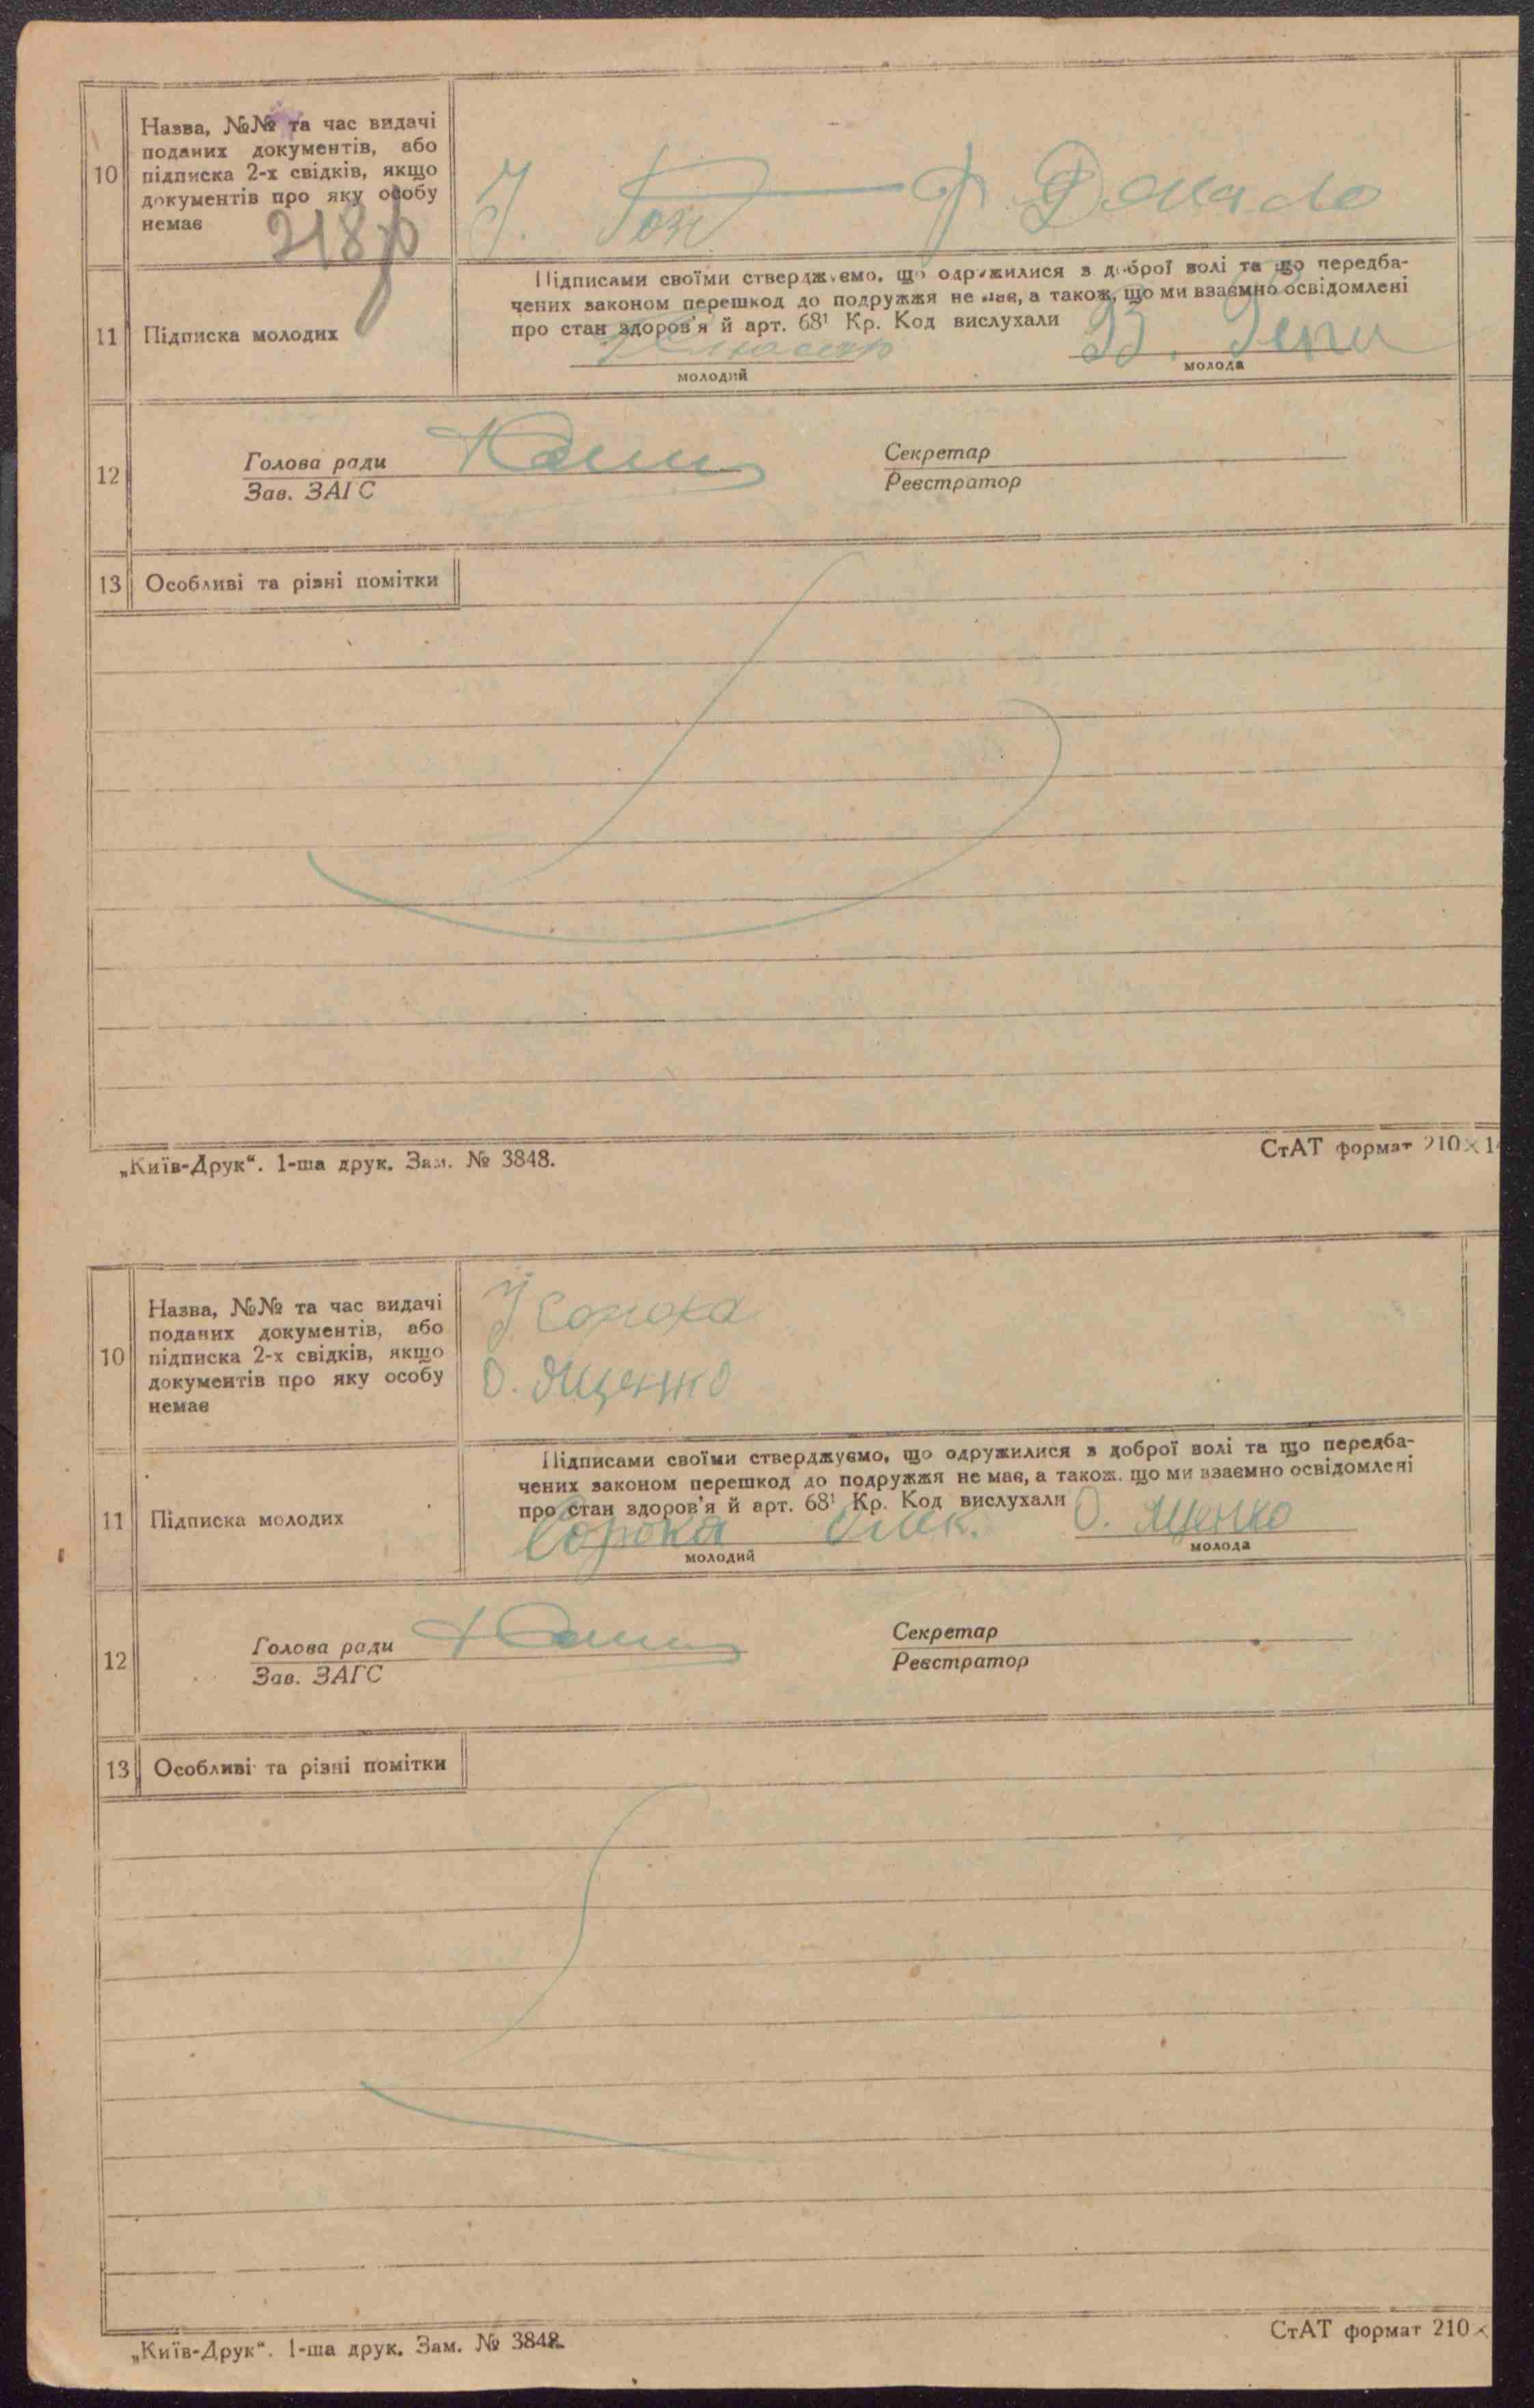 10
Назва, №№ та час видачі
поданих документів, або
підписка 2-х свідків, якщо
документів про яку особу
немає
11
Підписка молодих
Підписами своїми стверджуємо, що одружилися з доброї волі та що передба-
чених законом перешкод до подружжя не має, а також, що ми взаємно освідомлені
про стан здоров'я й арт. 68¹ Кр. Код вислухали
молодий
молода
12
Голова ради
Зав. ЗАГС
Секретар
Реєстратор
13
Особливі та різні помітки
„Київ-Друк“. 1-ша друк. Зам. № 3848.
СтАТ формат 210×1
10
Назва, №№ та час видачі
поданих документів, або
підписка 2-х свідків, якщо
документів про яку особу
немає
І Сорока
О. Яценко
11
Підписка молодих
Підписами своїми стверджуємо, що одружилися з доброї волі та що передба-
чених законом перешкод до подружжя не має, а також. що ми взаємно освідомлені
про стан здоров'я й арт. 68¹ Кр. Код вислухали
Сорока Олек. О. Яценко
молодий
молода
12
Голова ради
Зав. ЗАГС
Секретар
Реєстратор
13
Особливі та різні помітки
„Київ-Друк“. 1-ша друк. Зам. № 3848.
СтАТ формат 210×